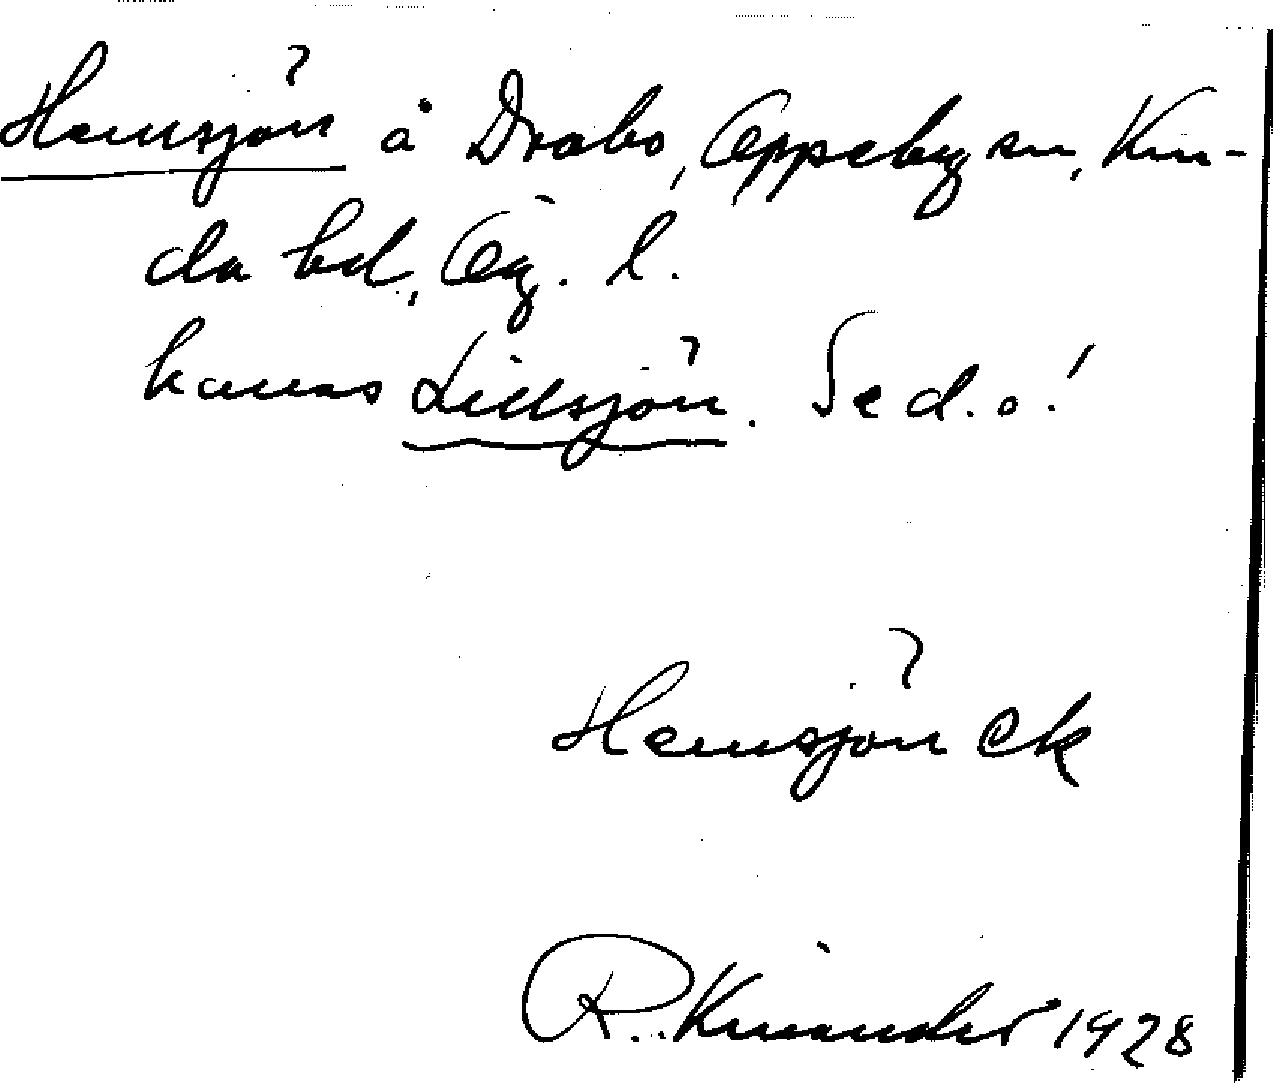 Hemsjön å Drabo, Oppeby sn, Kin-
da hd, Ög. l.
kallas Lillsjön. Se d.o!
Hemsjön Ek
R. Kinander 1928